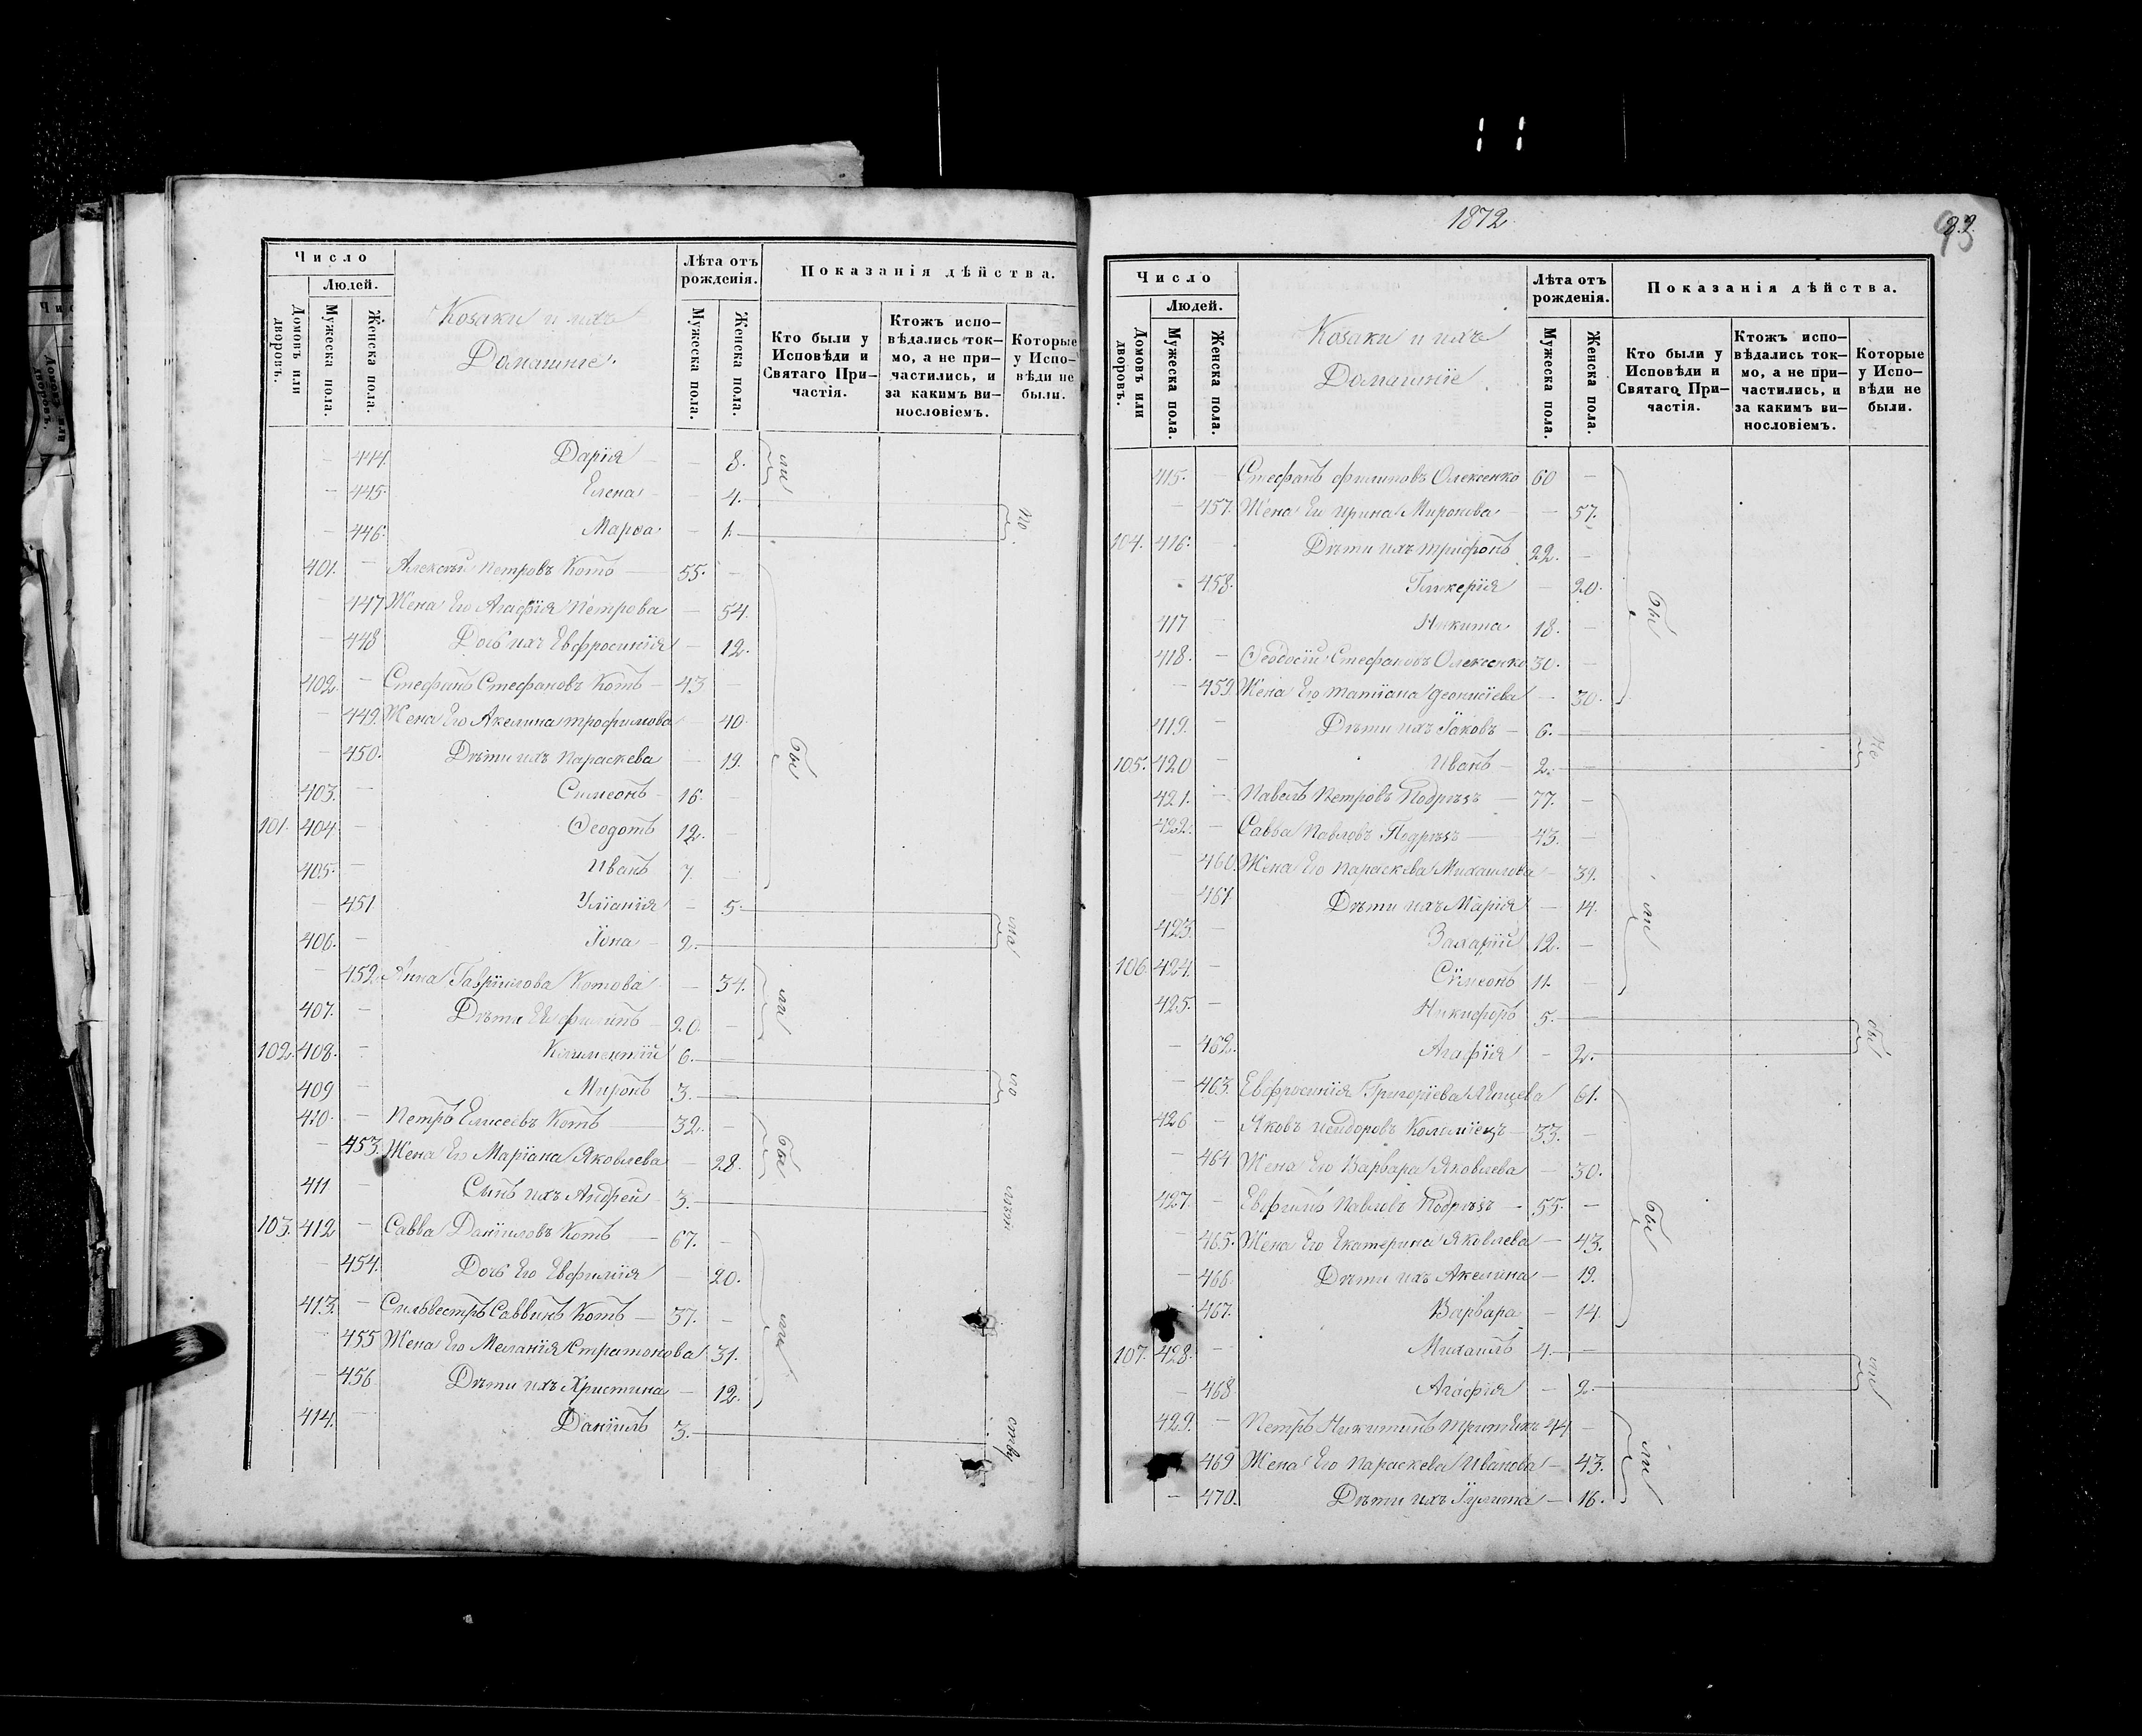 Число
Людей.
Домовъ или дворовъ.
Мужеска пола.
Женска пола.
Козаки и ихъ
Домашніе.
Лѣта отъ рожденія.
Мужеска пола.
Женска пола.
Показанія дѣйства.
Кто были у Исповѣди и Святаго При-частія.
Ктожъ испо-вѣдались ток-мо, а не при-частились, и за какимъ ви-нословіемъ.
Которые у Испо-вѣди не были.
— 444. Дарія — 8. ли
— 445. Елена — 4.
— 446. Марѳа — 1.
401. — Алексѣй Петровъ Котъ — 55. —
— 447 Жена Его Агафія Петрова — 54.
— 448 Дочь ихъ Евфросинія — 12.
402. — Стефанъ Стефановъ Котъ — 43 —
— 449. Жена Его Акелина Трофимова — 40.
— 450. Дѣти ихъ Параскева — 19. бы
403. — Симеонъ — 16.
101. 404 — Ѳеодотъ 12. —
405. — Иванъ 7. —
— 451 Уліанія — 5.
406. — Іона — 2.
— 452 Анна Гавріилова Котова — 34. ли
407. — Дѣти Ея Филипъ — 20. —
102. 408. — Климентій 6. —
409 — Миронъ 3. —
410. — Петръ Елисеевъ Котъ 32. —
— 453. Жена Его Маріана Яковлева — 28. бы
411 — Сынъ ихъ Андрей — 3.
103. 412 — Савва Даніиловъ Котъ — 67. —
— 454. Дочь Его Евфимія — 20.
413. — Сильвестръ Саввинъ Котъ — 37. —
— 455 Жена Его Меланія Стратонова 31.
— 456 Дѣти ихъ Христина — 12.
414. — Даніилъ 3.
1872.
93
Число
Людей.
Домовъ или дворовъ.
Мужеска пола.
Женска пола.
Козаки и ихъ
Домашніе
Лѣта отъ рожденія.
Мужеска пола.
Женска пола.
Показанія дѣйства.
Кто были у Исповѣди и Святаго При-частія.
Ктожъ испо-вѣдались ток-мо, а не при-частились, и за какимъ ви-нословіемъ.
Которые у Испо-вѣди не были.
415. — Стефанъ Филиповъ Олексенко 60 —
— 457. Жена Его Ирина Миронова — 57.
104. 416. — Дѣти ихъ Трифонъ 22. —
458. Гликерія — 20. бы
417 — Никита 18. —
418. — Ѳеодосій Стефановъ Олексенко 30. —
— 459 Жена Его Татіана Деонисіева — 30.
419. — Дѣти ихъ Іаковъ — 6. не
105. 420 — Иванъ — 2.
421. — Павелъ Петровъ Подрѣзъ — 77. —
422. — Савва Павловъ Подрѣзъ — 43. —
— 460. Жена Его Параскева Михаилова — 39.
— 461 Дѣти ихъ Марія — 14. ли
423. — Захарій 12. —
106. 424. — Симеонъ 11. —
425. — Никифоръ 5. — бы
— 462. Агафія — 2.
— 463. Евфросинія Григоріева 61.
426 — Яковъ Исидоровъ Коломіецъ — 33. —
— 464 Жена Его Варвара Яковлева — 30.
427. — Евфимъ Павловъ Подрѣзъ — 55. — бы
— 465. Жена Его Екатерина Яковлева — 43.
— 466. Дѣти ихъ Акелина — 19.
467. Варвара — 14.
107. 428. — Михаилъ 4. — ли
— 468 Агафія — 2.
429. — Петръ Никитинъ 44 —
469 Жена Его Параскева Иванова — 43. ли
— 470. Дѣти ихъ Іулита — 16.